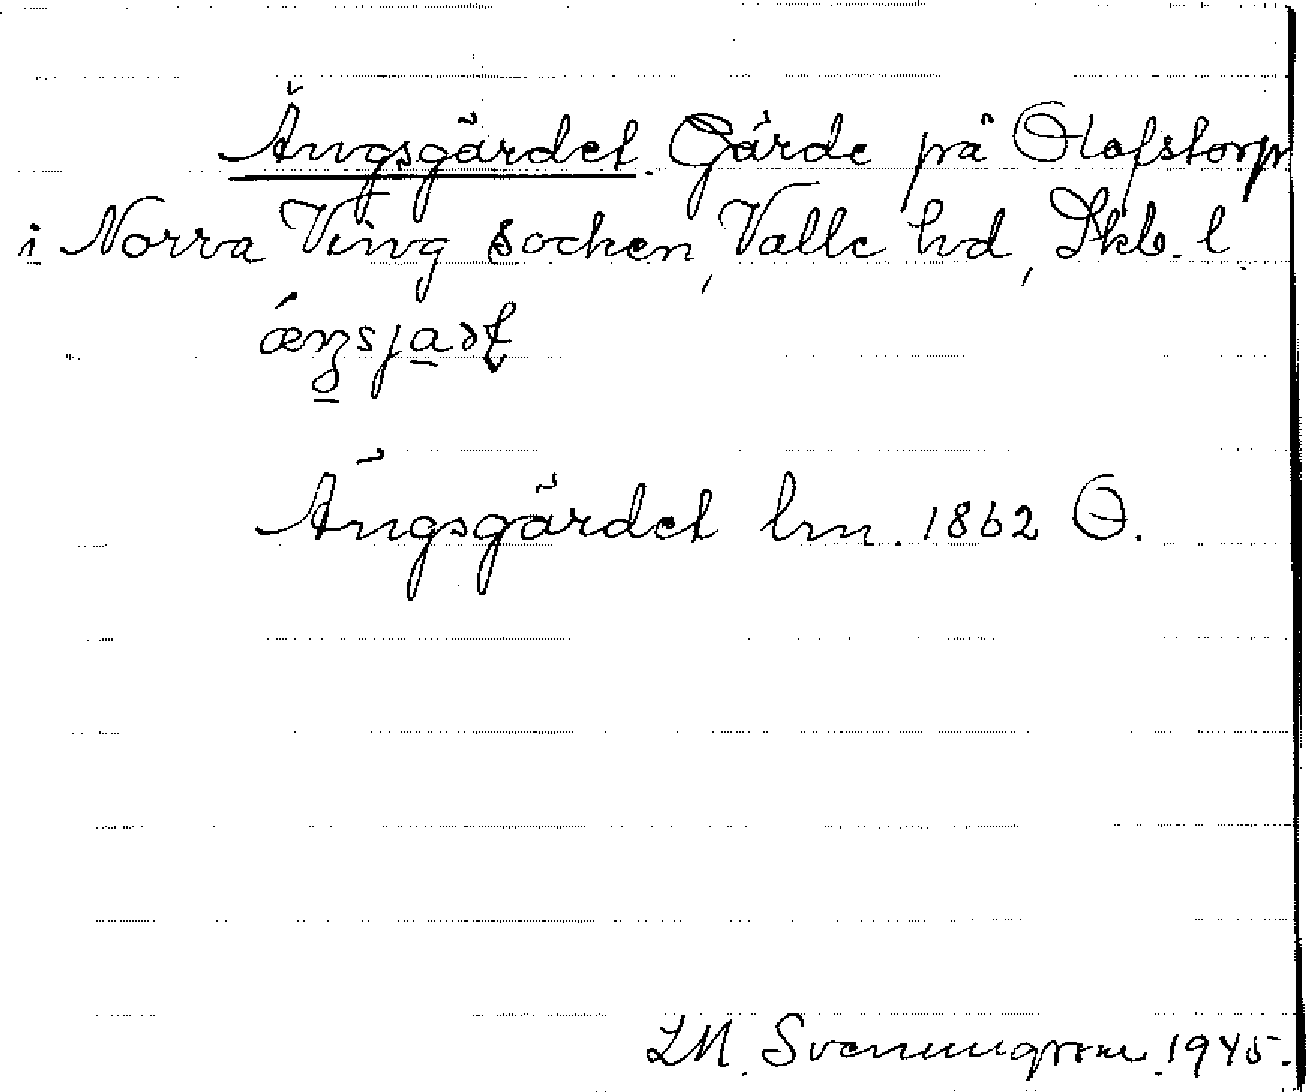 Ängsgärdet. Gärde på Olofstorp
i Norra Ving socken, Valle hd, Skb. l.
Ängsgärdet lm. 1862 O.
1945.